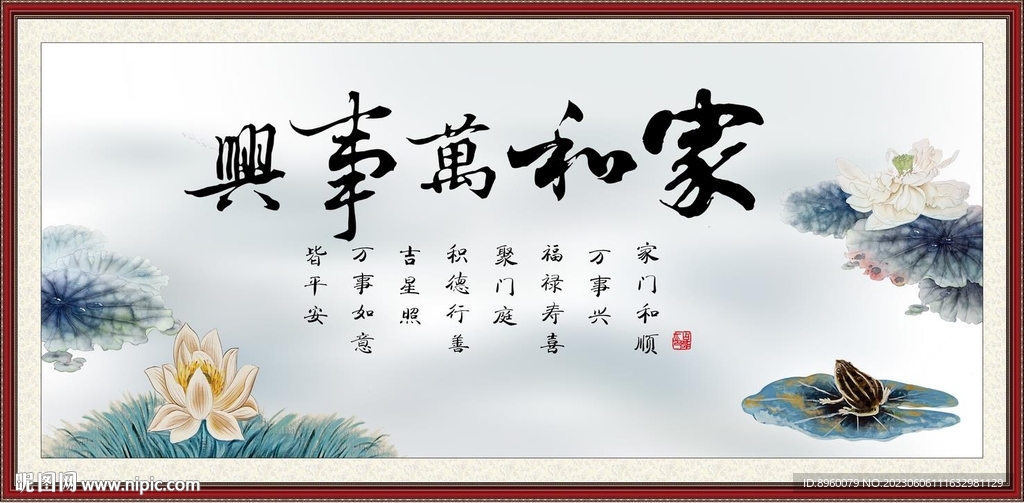 家和萬事興
家门和顺
万事兴
福禄寿喜
聚门庭
积德行善
吉星照
万事如意
皆平安
昵图网 www.nipic.com
ID:8960079 NO:20230606111632981129